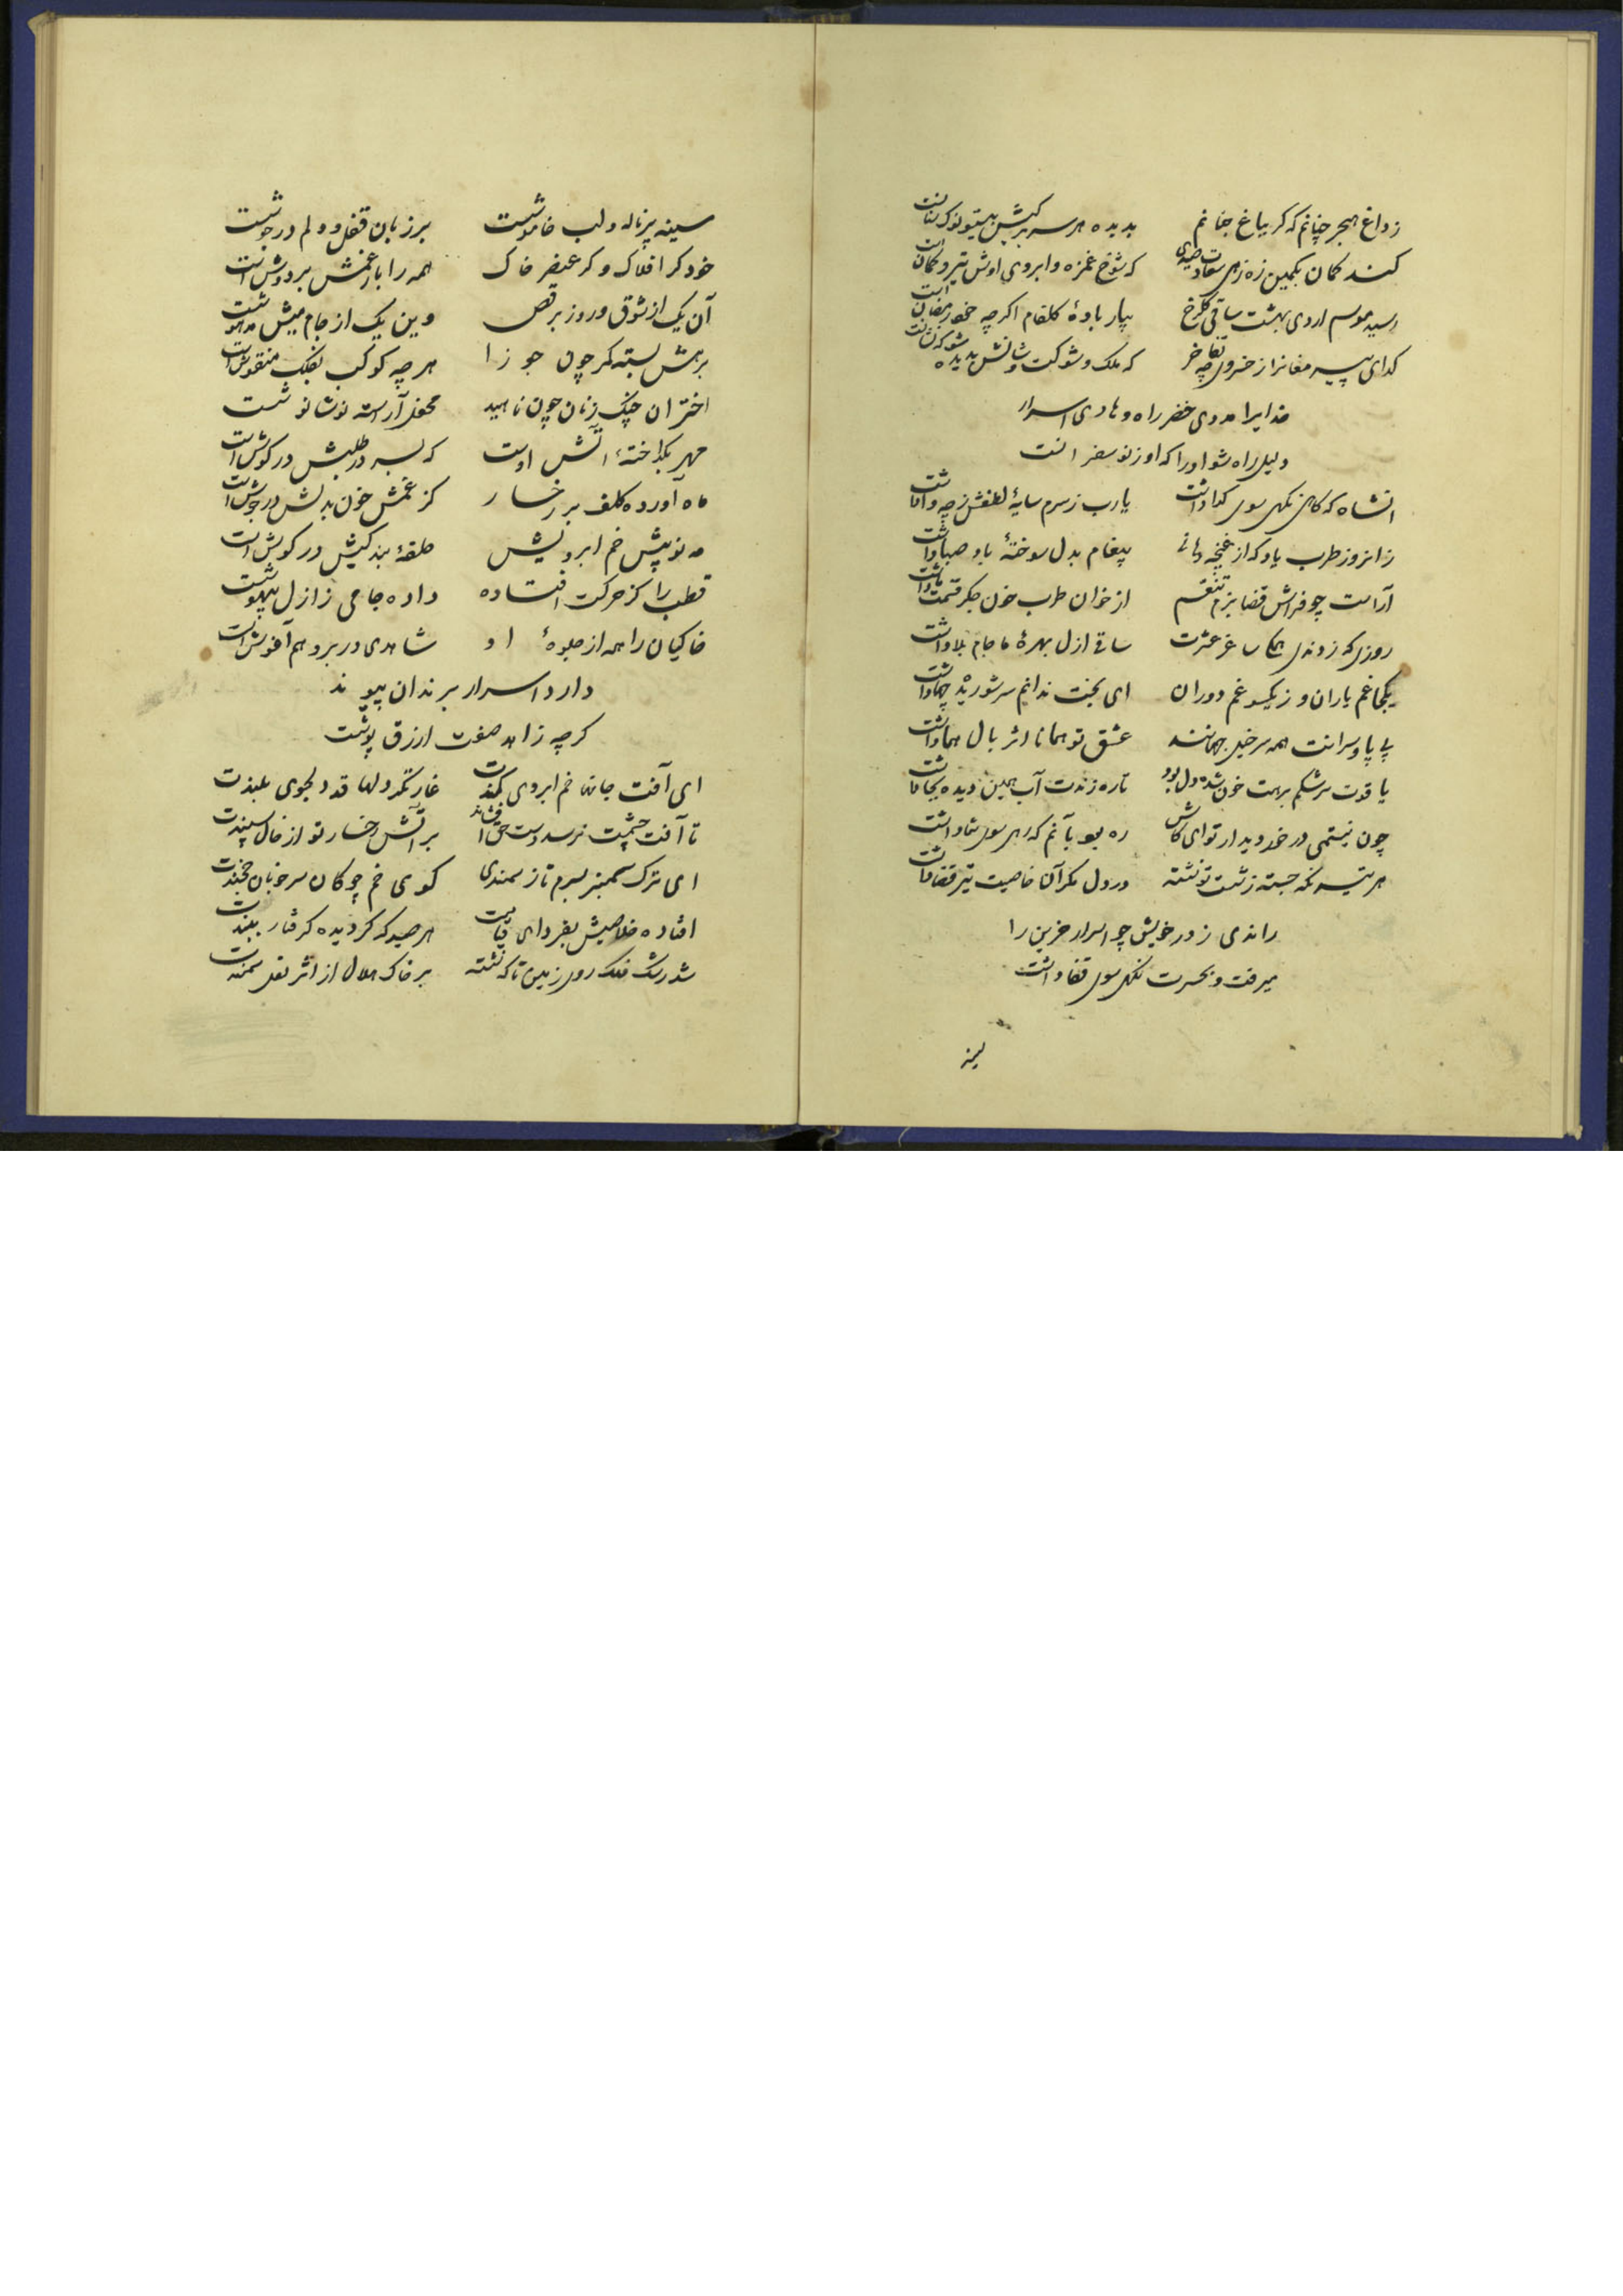 ز داغ هجر چنانم که کر بباغ جنانم بدیده هر سر برکیش نیستی و نوک سنانست
کند کمان بکمین زه زهی سعادت صیدی که شوخ غمزه و ابروی اوش تیر و کمان است
رسید موسم اردی بهشت ساقی کلرخ بیار بادهٔ کلفام اکر چه خود رمضان است
کدای پیر مغانرا ز خسروی چه تفاخر که ملک و شوکت و شانش بدیده
خدایرا مددی خضر راه و هادی اسرار
دلیل راه شو او را که او ز نو سفرانست
آنشاه که کاهی نکهی سوی کدا داشت یا رب ز سرم سایهٔ لطفش ز چه وا داشت
زانروز طرب یاد که از غنچه دهانی پیغام بدل سوختهٔ باد صبا داشت
آراست چو فراش قضا بزم تنعم از خوان طرب خون جکر قسمت ما داشت
روزی که زدندی همکی ساغر عشرت ساقی ازل بهرهٔ ما جام بلا داشت
یکجا غم یاران و ز یکسو غم دوران ای بخت ندانم سر شوریده چها داشت
بی پا و سرانت همه سر خیل جهانند عشق تو همانا اثر بال هما داشت
یاقوت سرشکم برهت خون شده دل بود تا ره زندت آب همین دیده بجا داشت
چون نیستمی در خور دیدار تو ای کاش ره بو بآنم که رهی سوی شما داشت
هر تیر نکه جسته ز شست تو نشسته در دل مکر آن خاصیت تیر قضا داشت
راندی ز در خویش چو اسرار حزین را
میرفت و بحسرت نکهی سوی قفا داشت
سینه پر ناله و لب خاموشست بر زبان قفل و دلم در جوشست
خود کر افلاک و کر عنصر خاک همه را بار غمش بر دوش است
آن یک از شوق در و روز برقص وین یک از جام میش مدهوشست
برهش بسته کمر چون جوزا هر چه کوکب بفلک منقوش است
اختران چنک زنان چون ناهید محفل آراسته نوشانوشست
مهر بکداختهٔ آتش اوست که بسر در طلبش در کوش است
ماه آورده کلف بر رخسار کز غمش خون بدلش در جوش است
مه نو پیش خم ابرویش حلقهٔ بندکیش در کوش است
قطب را کز حرکت افتاده داده جامی ز ازل بیهوشست
خاکیان را همه از جلوهٔ او شاهدی در بر و هم آغوش است
دارد اسرار برندان پیوند
کر چه زاهد صفت ازرق پوشست
ای آفت جانها خم ابروی کمندت غارتکر دلها قد دلجوی بلندت
تا آفت چشمت نرسد دست حق افشاند بر آتش رخسار تو از خال سپندت
ای ترک سمنبر بسرم تاز سمندی کوی خم چوکان سر خوبان خجندت
افتاده خلاصیش بفردای قیامت هر صید که کردیده کرفتار ببندت
شد رشک فلک روی زمین تا که نشسته بر خاک هلال از اثر نعل سمندت